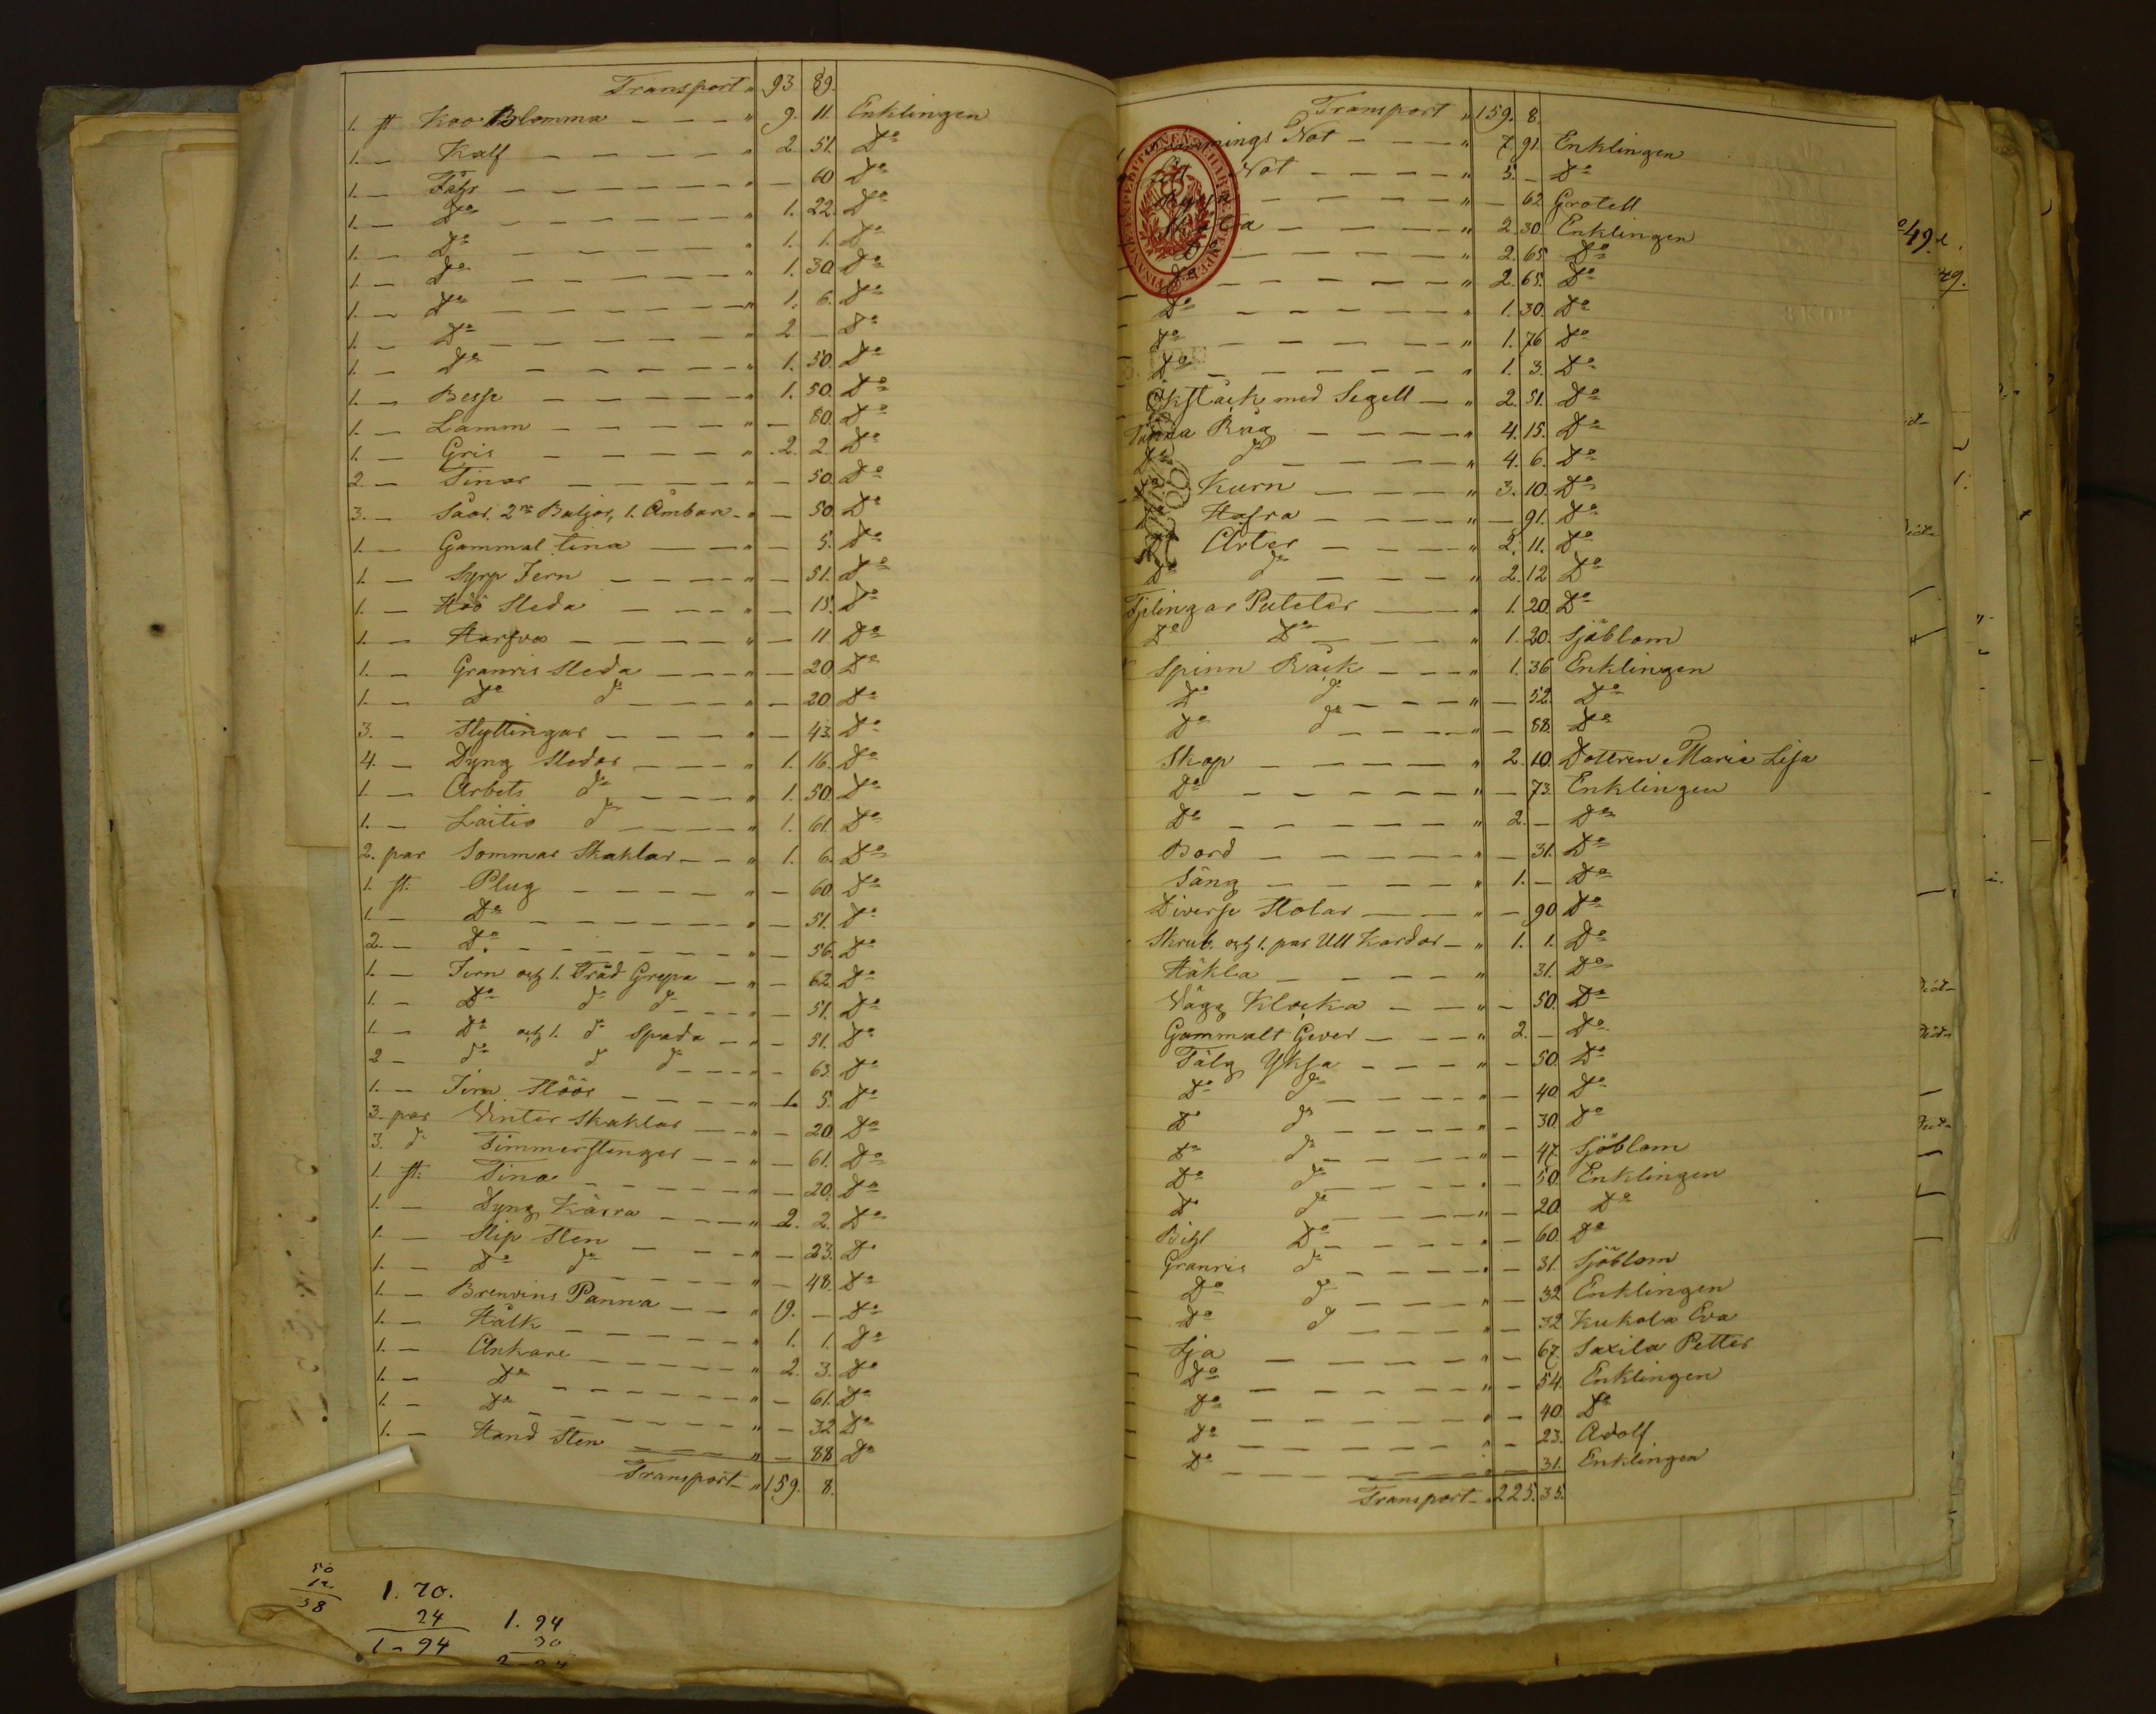 Transport " 93 89.
1. st Koo Blomma — — — " 9. 11. Enklingen
1. — Kalf — — — — " 2. 51. Do
1. — Får — — — — " — 60 Do
1. — Do — — — — " 1. 22. Do
1. — Do — — — — " 1. 1. Do
1. — Do — — — — " 1. 30 Do
1. — Do — — — — " 1. 6. Do
1. — Do — — — — " 2 — Do
1. — Do — — — — " 1. 50. Do
1. — Besse — — — — " 1. 50. Do
1. — Lamm — — — — " — 80. Do
1. — Gris — — — — " 2. 2. Do
2 — Tinor — — — — " — 50. Do
3. — Såar. 2ne Baljor, 1. Ämbar — " — 50 Do
1. — Gammal tina — — " — 5. Do
1. — Syrp Jern — — — " — 51. Do
1. — Höö Sleda — — — " — 15. Do
1. — Harfva — — — — " — 11 Do
1. — Granris Sleda — — — " — 20 Do
1. — Do do — — — " — 20 Do
3. — Slyttingar — — — " — 43. Do
4. — Dyng Sledor — — — " 1. 16. Do
1. — Arbets do — — — " 1. 50. Do
1. — Laitio do — — — " 1. 61. Do
2. par Sommar Skaklar — — " 1. 6. Do
1. st: Plug — — — — " — 60 Do
1. — Do — — — — " — 51. Do
2. — Do — — — — " — 56. Do
1. — Jern och 1. Träd Grepa — " — 62. Do
1. — Do do do — — " — 51. Do
1. — Do och 1. do Spada — " — 51. Do
2 — do do do — — " — 63. Do
1. — Jern Stöör — — — " 1. 5. Do
3. par Winter Skaklar — — " — 20 Do
3. do Timmerstenger — — " — 61. Do
1. st: Tina — — — — " — 20. Do
1. — Dyng Kärra — — — " 2. 2. Do
1. — Slip Sten — — — " — 23. Do
1. — Do do — — — " — 48. Do
1. — Brenvins Panna — — " 19. — Do
1. — Hålk — — — — " 1. 1. Do
1. — Ankare — — — — " 2. 3. Do
1. — Do — — — — " — 61. Do
1. — Do — — — — " — 32 Do
1. — Hand Sten — — — " — 88 Do
Transport — " 159. 8.
50
12
38
1. 70.
24
1 - 94
1. 94
30
Transport " 159. 8.
Not — — — " 7. 91. Enklingen
Not — — — — " 5. — Do
— — — — " — 62 Grotell
— — — — " 2. 30. Enklingen
Do — — — — " 2. 65. Do
Do — — — — " 2. 65. Do
Do — — — — " 1. 30. Do
Do — — — — " 1. 76 Do
Do — — — — " 1. 3. Do
Ökstäck med Segell — " 2. 51. Do
Tunna Råg — — — " 4. 15. Do
Do do — — — " 4. 6. Do
Do Kurn — — — " 3. 10. Do
Do Hafra — — — " — 91. Do
Do Ärter — — — " 2. 11. Do
Do do — — — " 2. 12 Do
Fjlingar Puteter — — " 1. 20. Do
Do Do — — — " 1. 20. Sjöblom
Spinn Råck — — — " 1. 36 Enklingen
Do do — — — " — 52. Do
Do do — — — " — 88. Do
Skop — — — — " 2. 10. Dottren Maria Lisa
Do — — — — " — 73. Enklingen
Do — — — — " 2. — Do
Bord — — — — " — 31. Do
Säng — — — — " 1. — Do
Diverse Stolar — — " — 90 Do
Skrub. och 1. par Ull Kardor — " 1. 1. Do
Häkla — — — — " 31. Do
Vägg Klocka — — " — 50. Do
Gammalt Gever — — " 2. — Do
Tälg Yksa — — — " — 50. Do
Do do — — — " — 40. Do
Do do — — — " — 30. Do
Do do — — — " — 47. Sjöblom
Do do — — — " — 50. Enklingen
Do do — — — " — 20. Do
Bihl Do — — — " — 60. Do
Granris do — — — " — 31. Sjöblom
Do do — — — " — 32 Enklingen
Do do — — — " — 32 Kukola Eva
Lja — — — — " — 67. Saxila Petter
Do — — — — " — 54. Enklingen
Do — — — — " — 40. Do
Do — — — — " — 23. Adolf
Do — — — — " — 31. Enklingen
Transport — " 225. 35.
49.